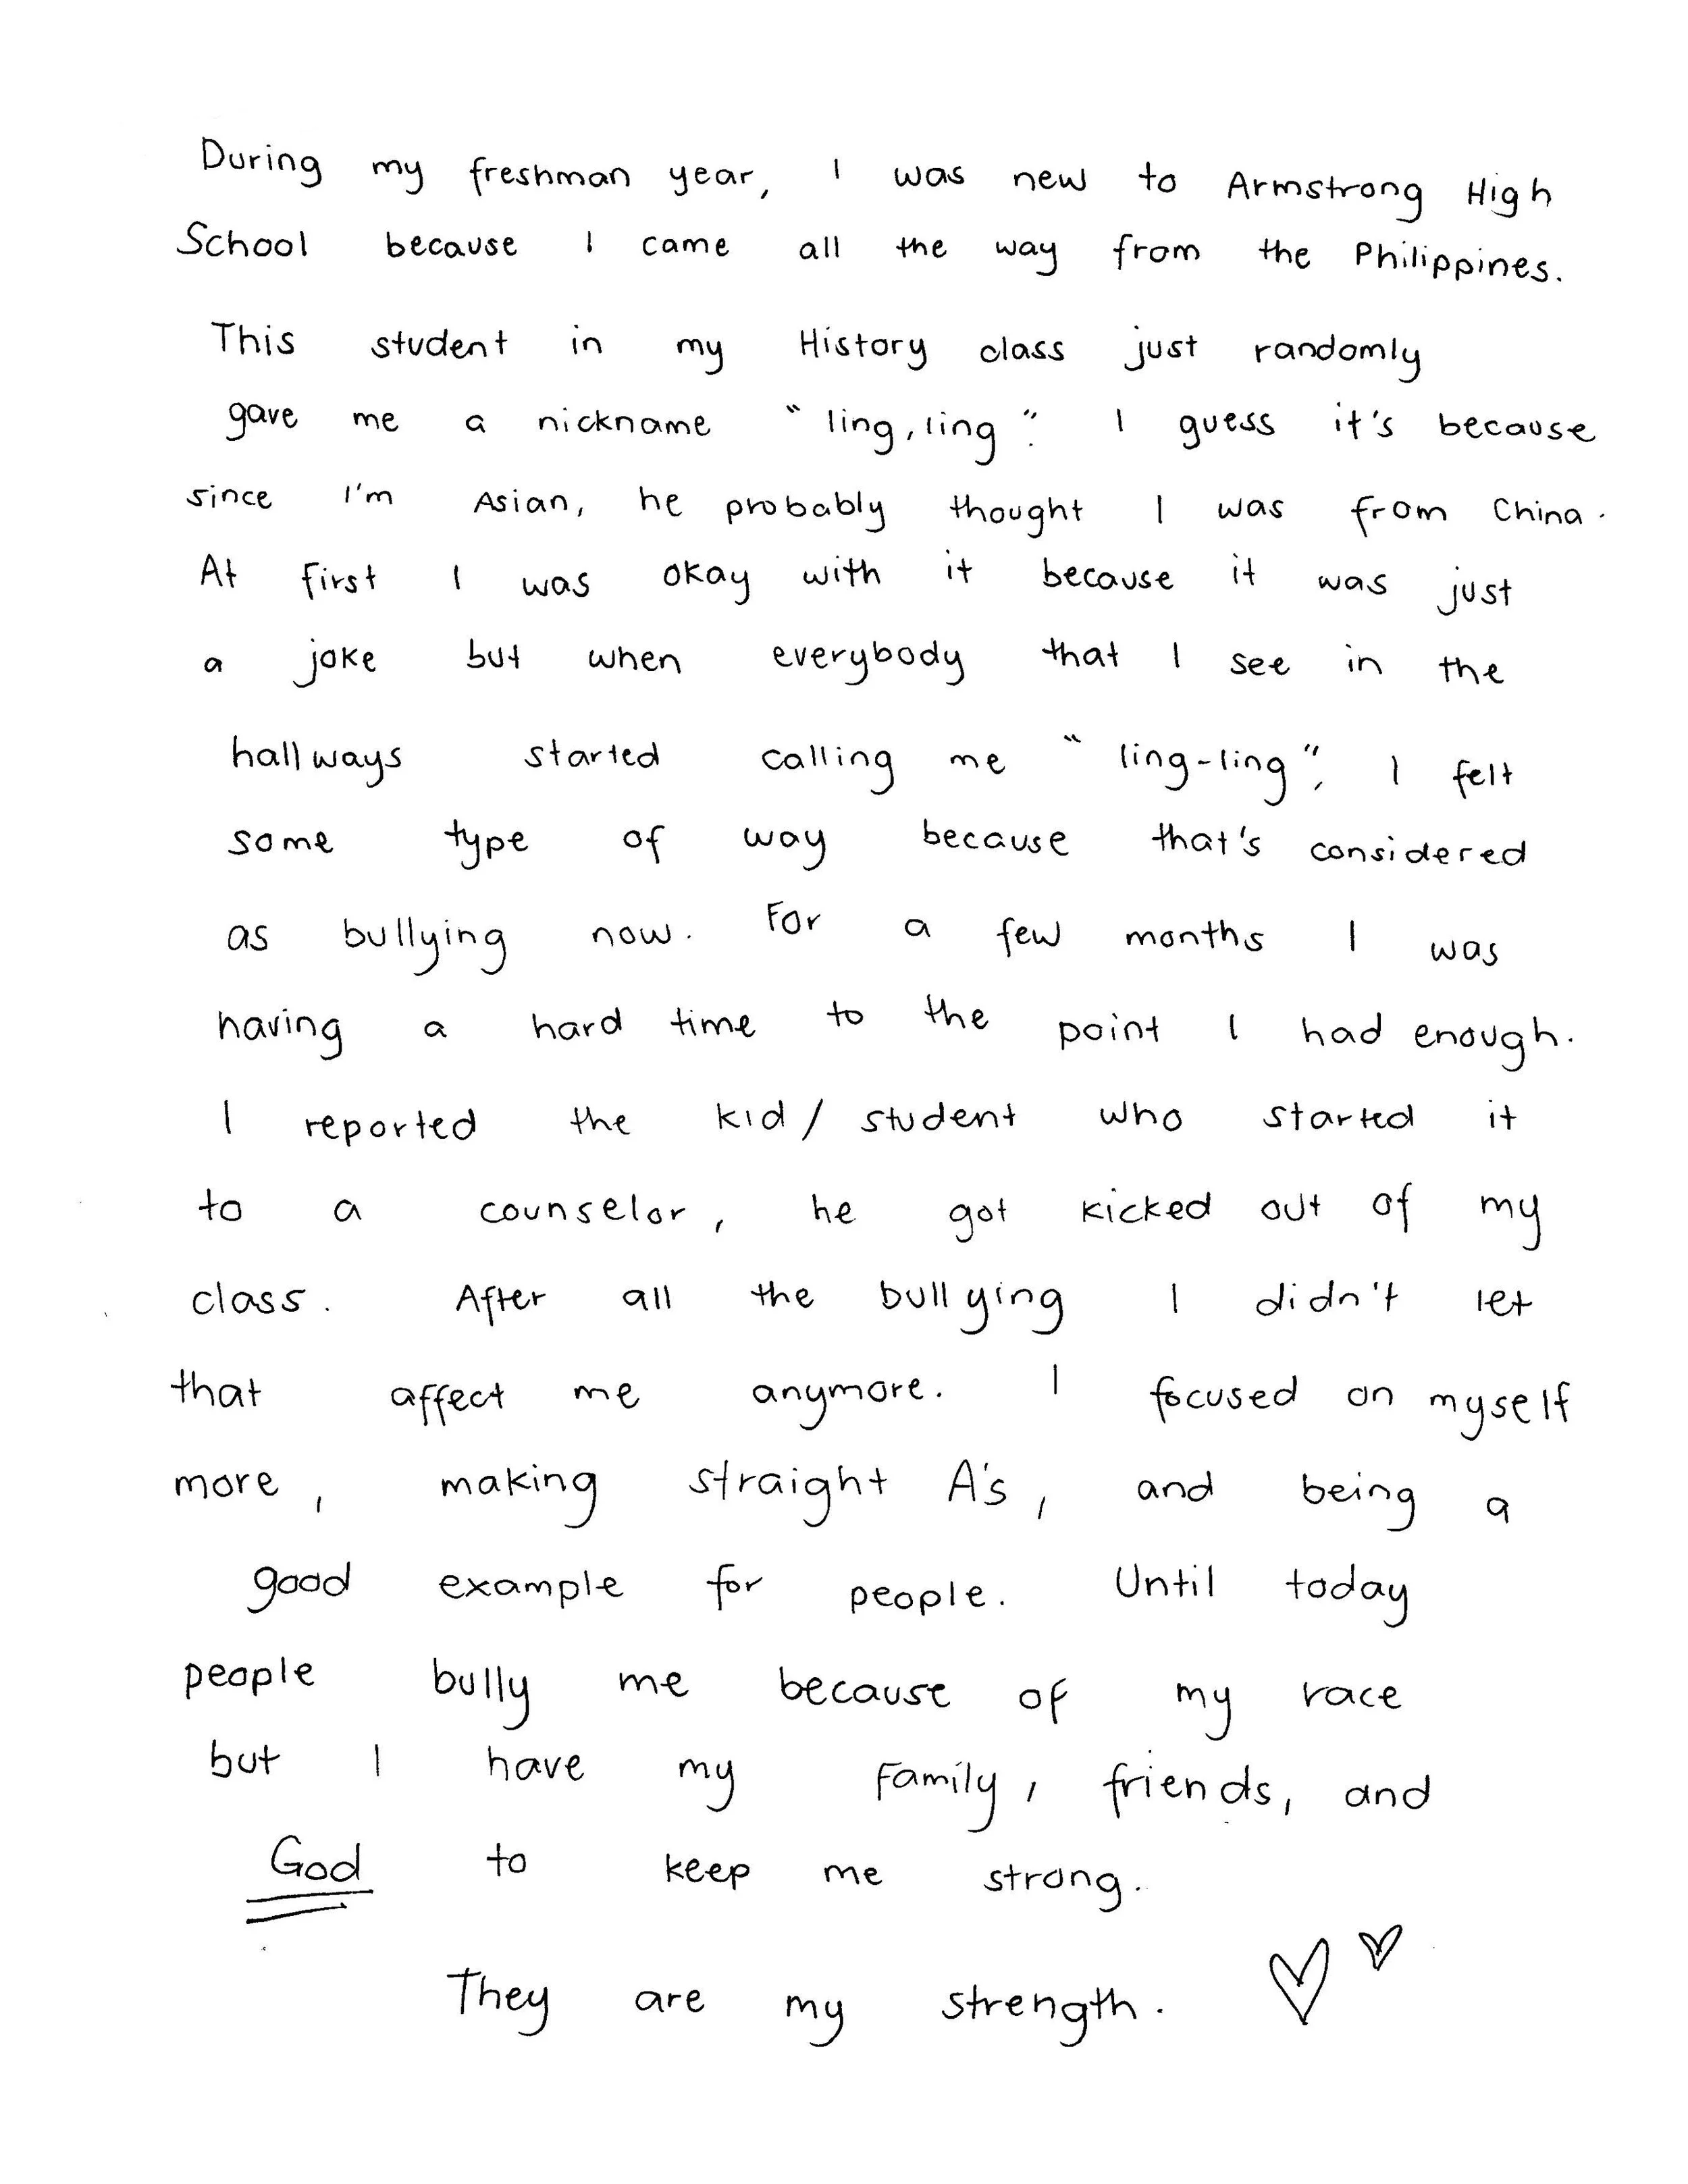 During my freshman year, I was new to Armstrong High
School because I came all the way from the Philippines.
This student in my History class just randomly
gave me a nickname "ling, ling". I guess it's because
since I'm Asian, he probably thought I was from China.
At first I was okay with it because it was just
a joke but when everybody that I see in the
hallways started calling me "ling-ling", I felt
some type of way because that's considered
as bullying now. For a few months I was
having a hard time to the point I had enough.
I reported the kid/student who started it
to a counselor, he got kicked out of my
class. After all the bullying I didn't let
that affect me anymore. I focused on myself
more, making straight A's, and being a
good example for people. Until today
people bully me because of my race
but I have my Family, friends, and
God to keep me strong.
They are my strength.